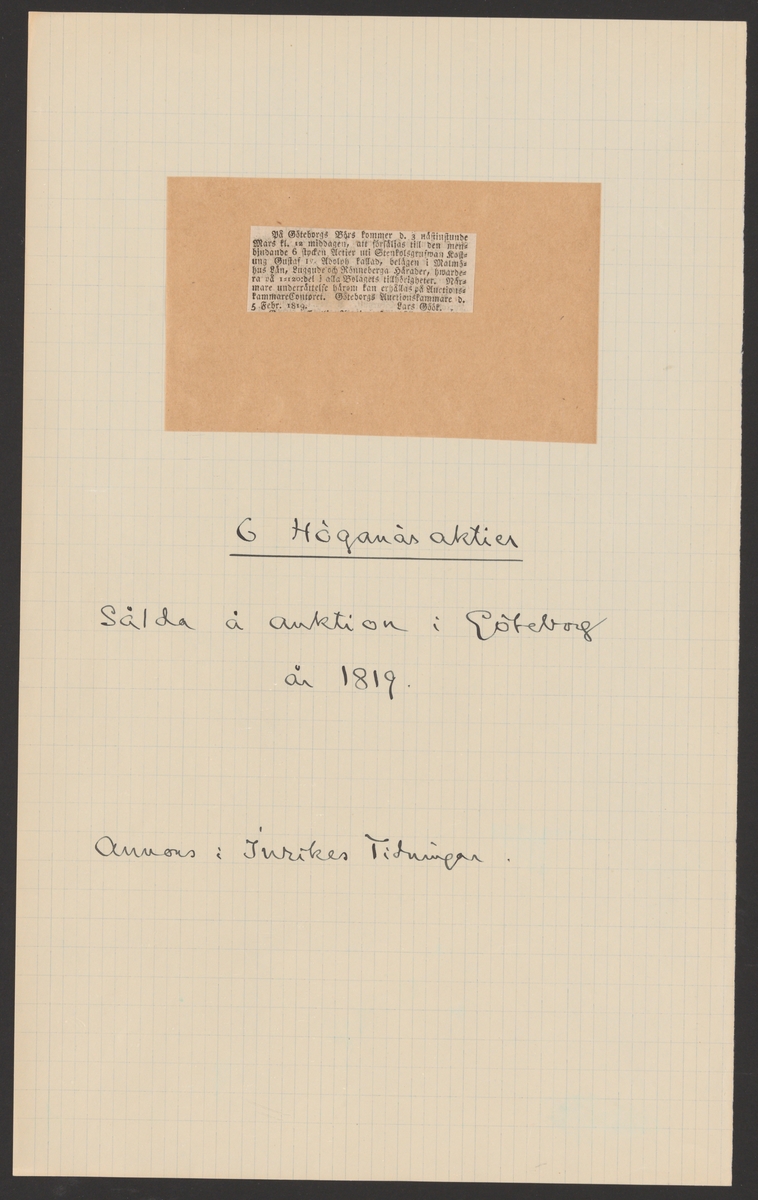 På Göteborgs Börs kommer d. 3 nästinstunde
Mars kl. 12 middagen, att försäljas till den mest-
bjudande 6 stycken Actier uti Stenkolsgrufwan
ung Gustaf IV. Adolph kallad, belägen i Malmö-
hus Län, Luggude och Rönneberga Härader, hwarde-
ra på 1-120:del i alla Bolagets tillhörigheter. När-
mare underrättelse härom kan erhållas på Auctions-
kammareContoret. Göteborgs Auctionskammare d.
5 Febr. 1819. Lars Göök.
6 Höganäs aktier
Sålda å auktion i Göteborg
år 1819.
Annons i Inrikes Tidningar.